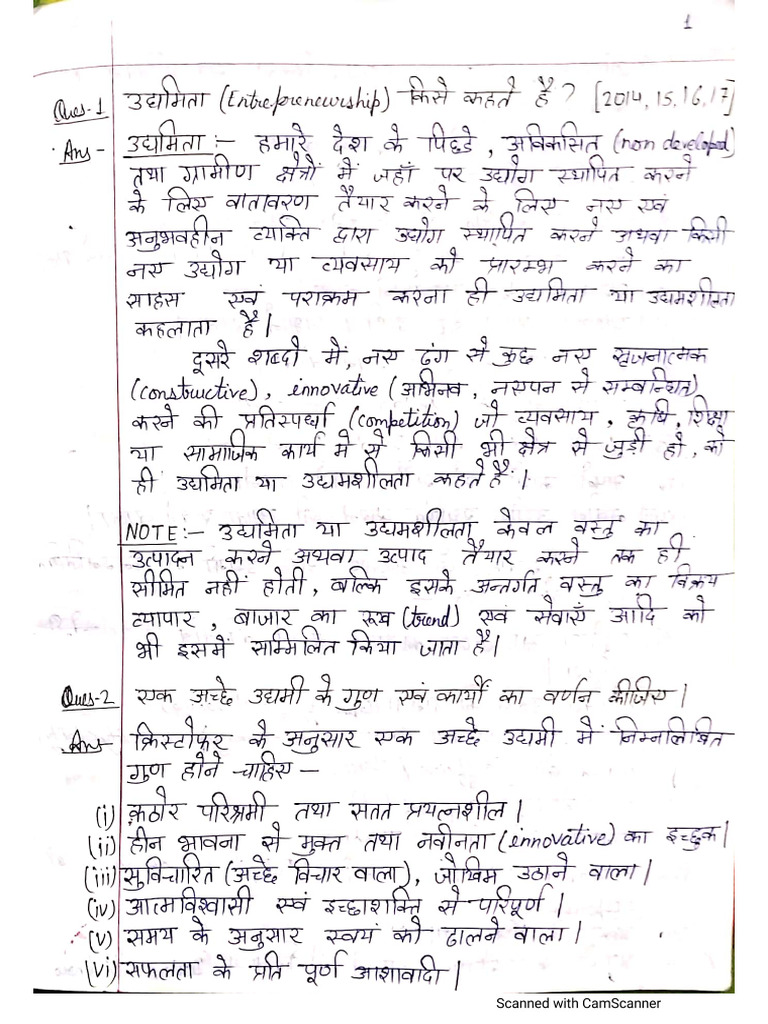 1
Ques-1 उद्यमिता (Entrepreneurship) किसे कहते है? [2014, 15, 16, 17]
Ans - उद्यमिता :- हमारे देश के पिछडे, अविकसित (non developed)
तथा ग्रामीण क्षेत्रों में जहाँ पर उद्योग स्थापित करने
के लिए वातावरण तैयार करने के लिए नए एवं
अनुभवहीन व्यक्ति द्वारा उद्योग स्थापित करने अथवा किसी
नए उद्योग या व्यवसाय को प्रारम्भ करने का
साहस एवं पराक्रम करना ही उद्यमिता या उद्यमशीलता
कहलाता है।
दूसरे शब्दो में, नए ढंग से कुछ नए सृजनात्मक
(constructive), innovative (अभिनव, नएपन से सम्बन्धित)
करने की प्रतिस्पर्धा (competition) जो व्यवसाय, कृषि, शिक्षा
या सामाजिक कार्य मे से किसी भी क्षेत्र से जुड़ी हो, को
ही उद्यमिता या उद्यमशीलता कहते हैं।
NOTE:- उद्यमिता या उद्यमशीलता केवल वस्तु का
उत्पादन करने अथवा उत्पाद तैयार करने तक ही
सीमित नहीं होती, बल्कि इसके अन्तर्गत वस्तु का विक्रय
व्यापार, बाजार का रूख (trend) एवं सेवाएँ आदि को
भी इसमे सम्मिलित किया जाता है।
Ques-2 एक अच्छे उद्यमी के गुण एवं कार्यों का वर्णन कीजिए।
Ans- क्रिस्टोफर के अनुसार एक अच्छे उद्यमी में निम्नलिखित
गुण होने चाहिए -
(i) कठोर परिश्रमी तथा सतत प्रयत्नशील।
(ii) हीन भावना से मुक्त तथा नवीनता (innovative) का इच्छुक।
(iii) सुविचारित (अच्छे विचार वाला), जोखिम उठाने वाला।
(iv) आत्मविश्वासी एवं इच्छाशक्ति से परिपूर्ण।
(v) समय के अनुसार स्वयं को ढालने वाला।
(vi) सफलता के प्रति पूर्ण आशावादी।
Scanned with CamScanner